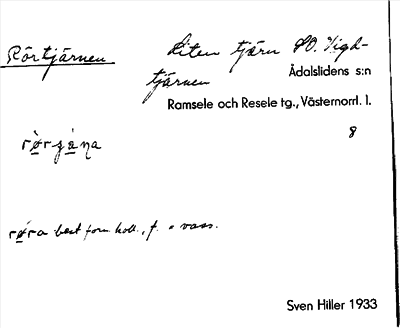 Rörtjärnen
Liten tjärn SO. Vigd-
tjärnen
Ådalslidens s:n
Ramsele och Resele tg., Västernorrl. l.
8
rø̀rɟä́na
rø̀ra best form. koll., f. = vass.
Sven Hiller 1933